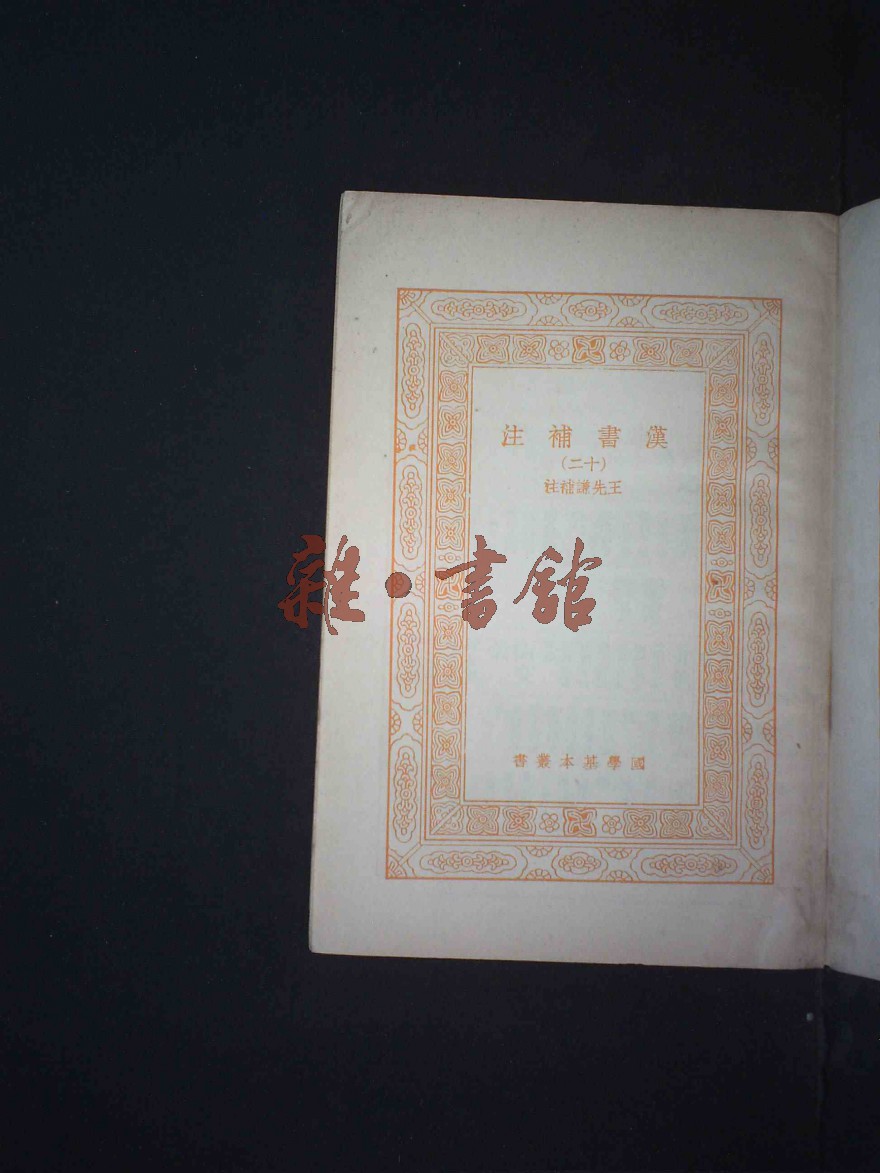 漢書補注
(十二)
王先謙補注
雜·書館
國學基本叢書